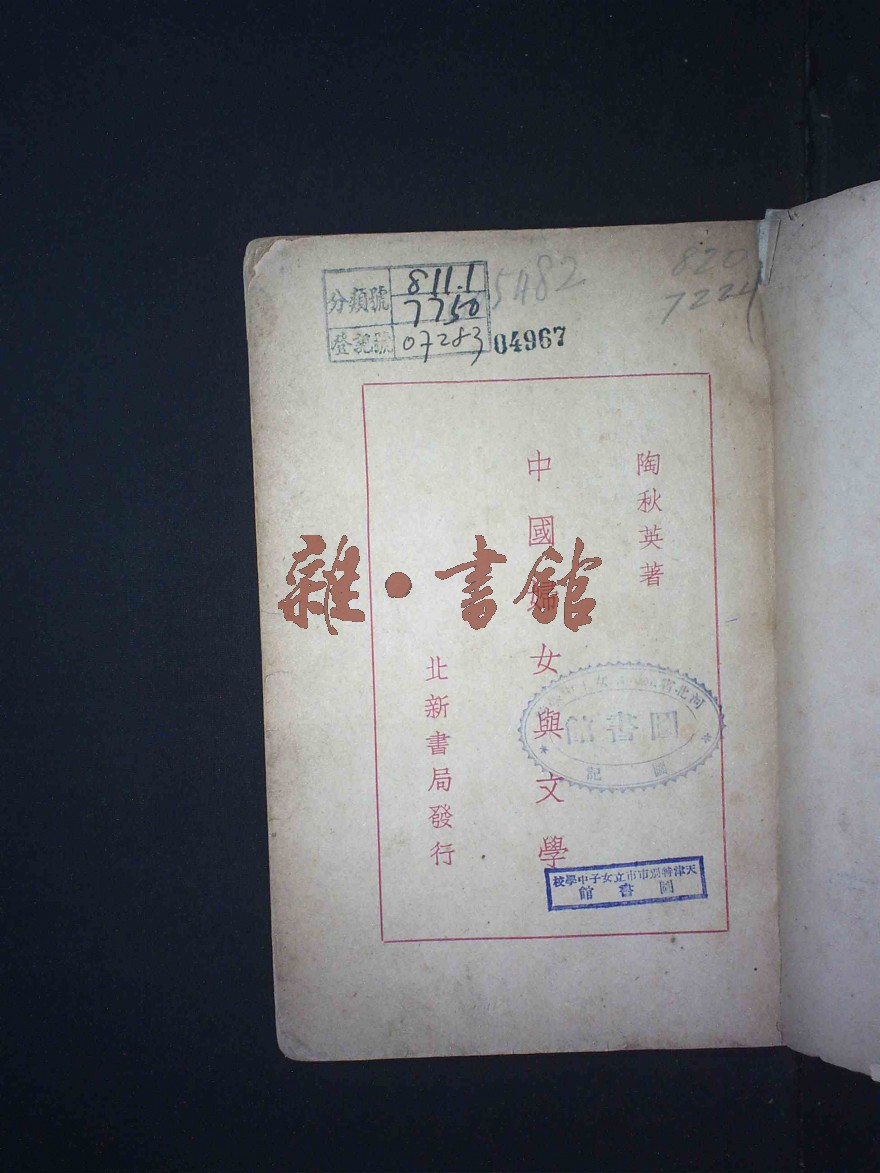 分類號 811.1
7750
登記號 07283
5482
04967
820
7224
陶秋英著
中國婦女與文學
北新書局發行
雜·書館
圖書館
天津特別市市立女子中學校
圖書館